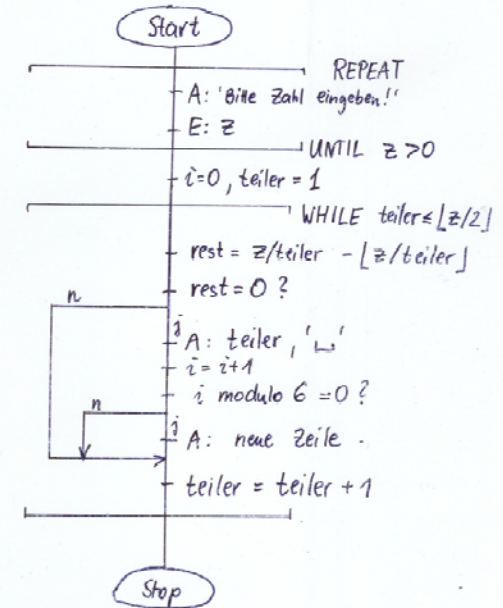 Start
REPEAT
A: 'Bitte Zahl eingeben!'
E: z
UNTIL z >0
i=0, teiler = 1
WHILE teiler ≤ ⌊z/2⌋
rest = z/teiler - ⌊z/teiler⌋
rest = 0 ?
n
j
A: teiler, '␣'
i = i+1
i modulo 6 = 0 ?
n
j
A: neue Zeile.
teiler = teiler + 1
Stop